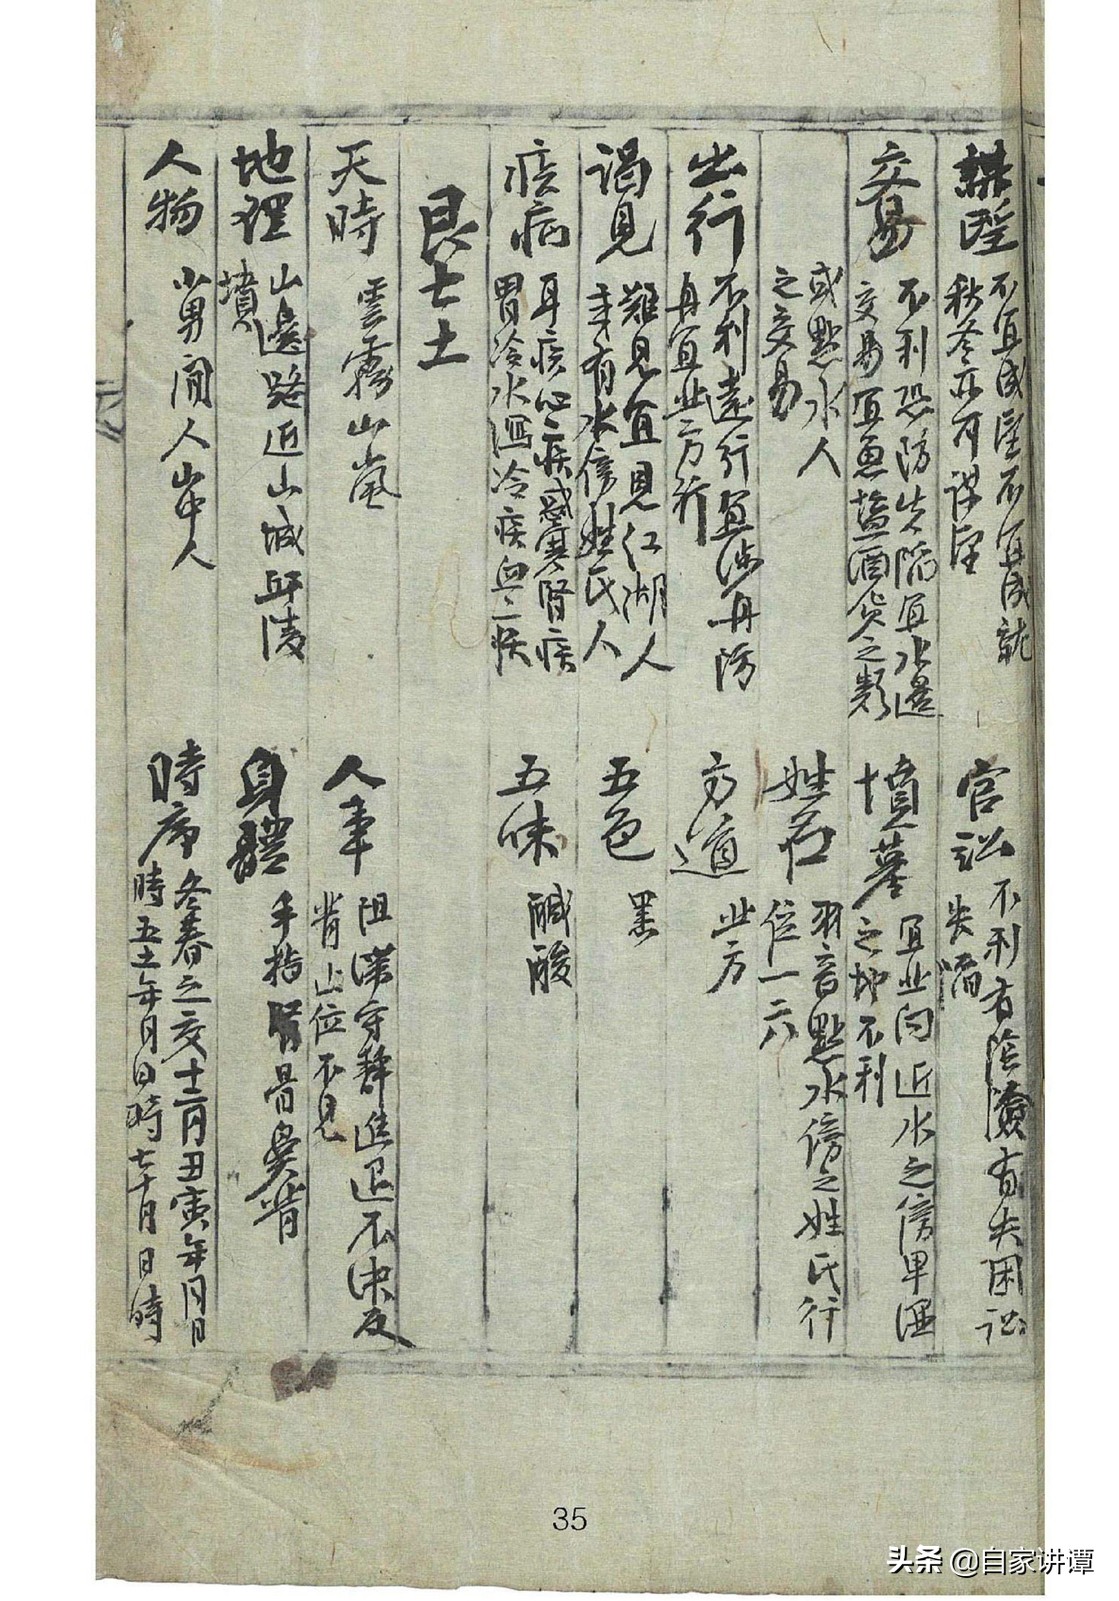 謀望 不宜成望不宜成就
秋冬亦可謀望
交易 不利恐防失陷宜水邊
交易宜魚鹽酒貨之類
或點水人
之交易
出行 不利遠行宜涉舟防
舟宜北方行
謁見 難見宜見江湖人
或有水傍姓氏人
疾病 耳疾心疾感寒腎疾
胃冷水瀉冷疾血疾
官訟 不利有陰險有失困訟
失陷
墳墓 宜北向近水之傍卑濕
之地不利
姓名 羽音點水傍之姓氏行
位一六
方道 北方
五色 黑
五味 鹹酸
艮七土
天時 雲霧山嵐
地理 山邊路近山城丘陵
墳
人物 少男閒人山中人
人事 阻滯守靜進退不決反
背止位不見
身體 手指骨鼻背
時序 冬春之交十二月丑寅年月日
時五土年月日時七十月日時
35
头条 @自家讲谭